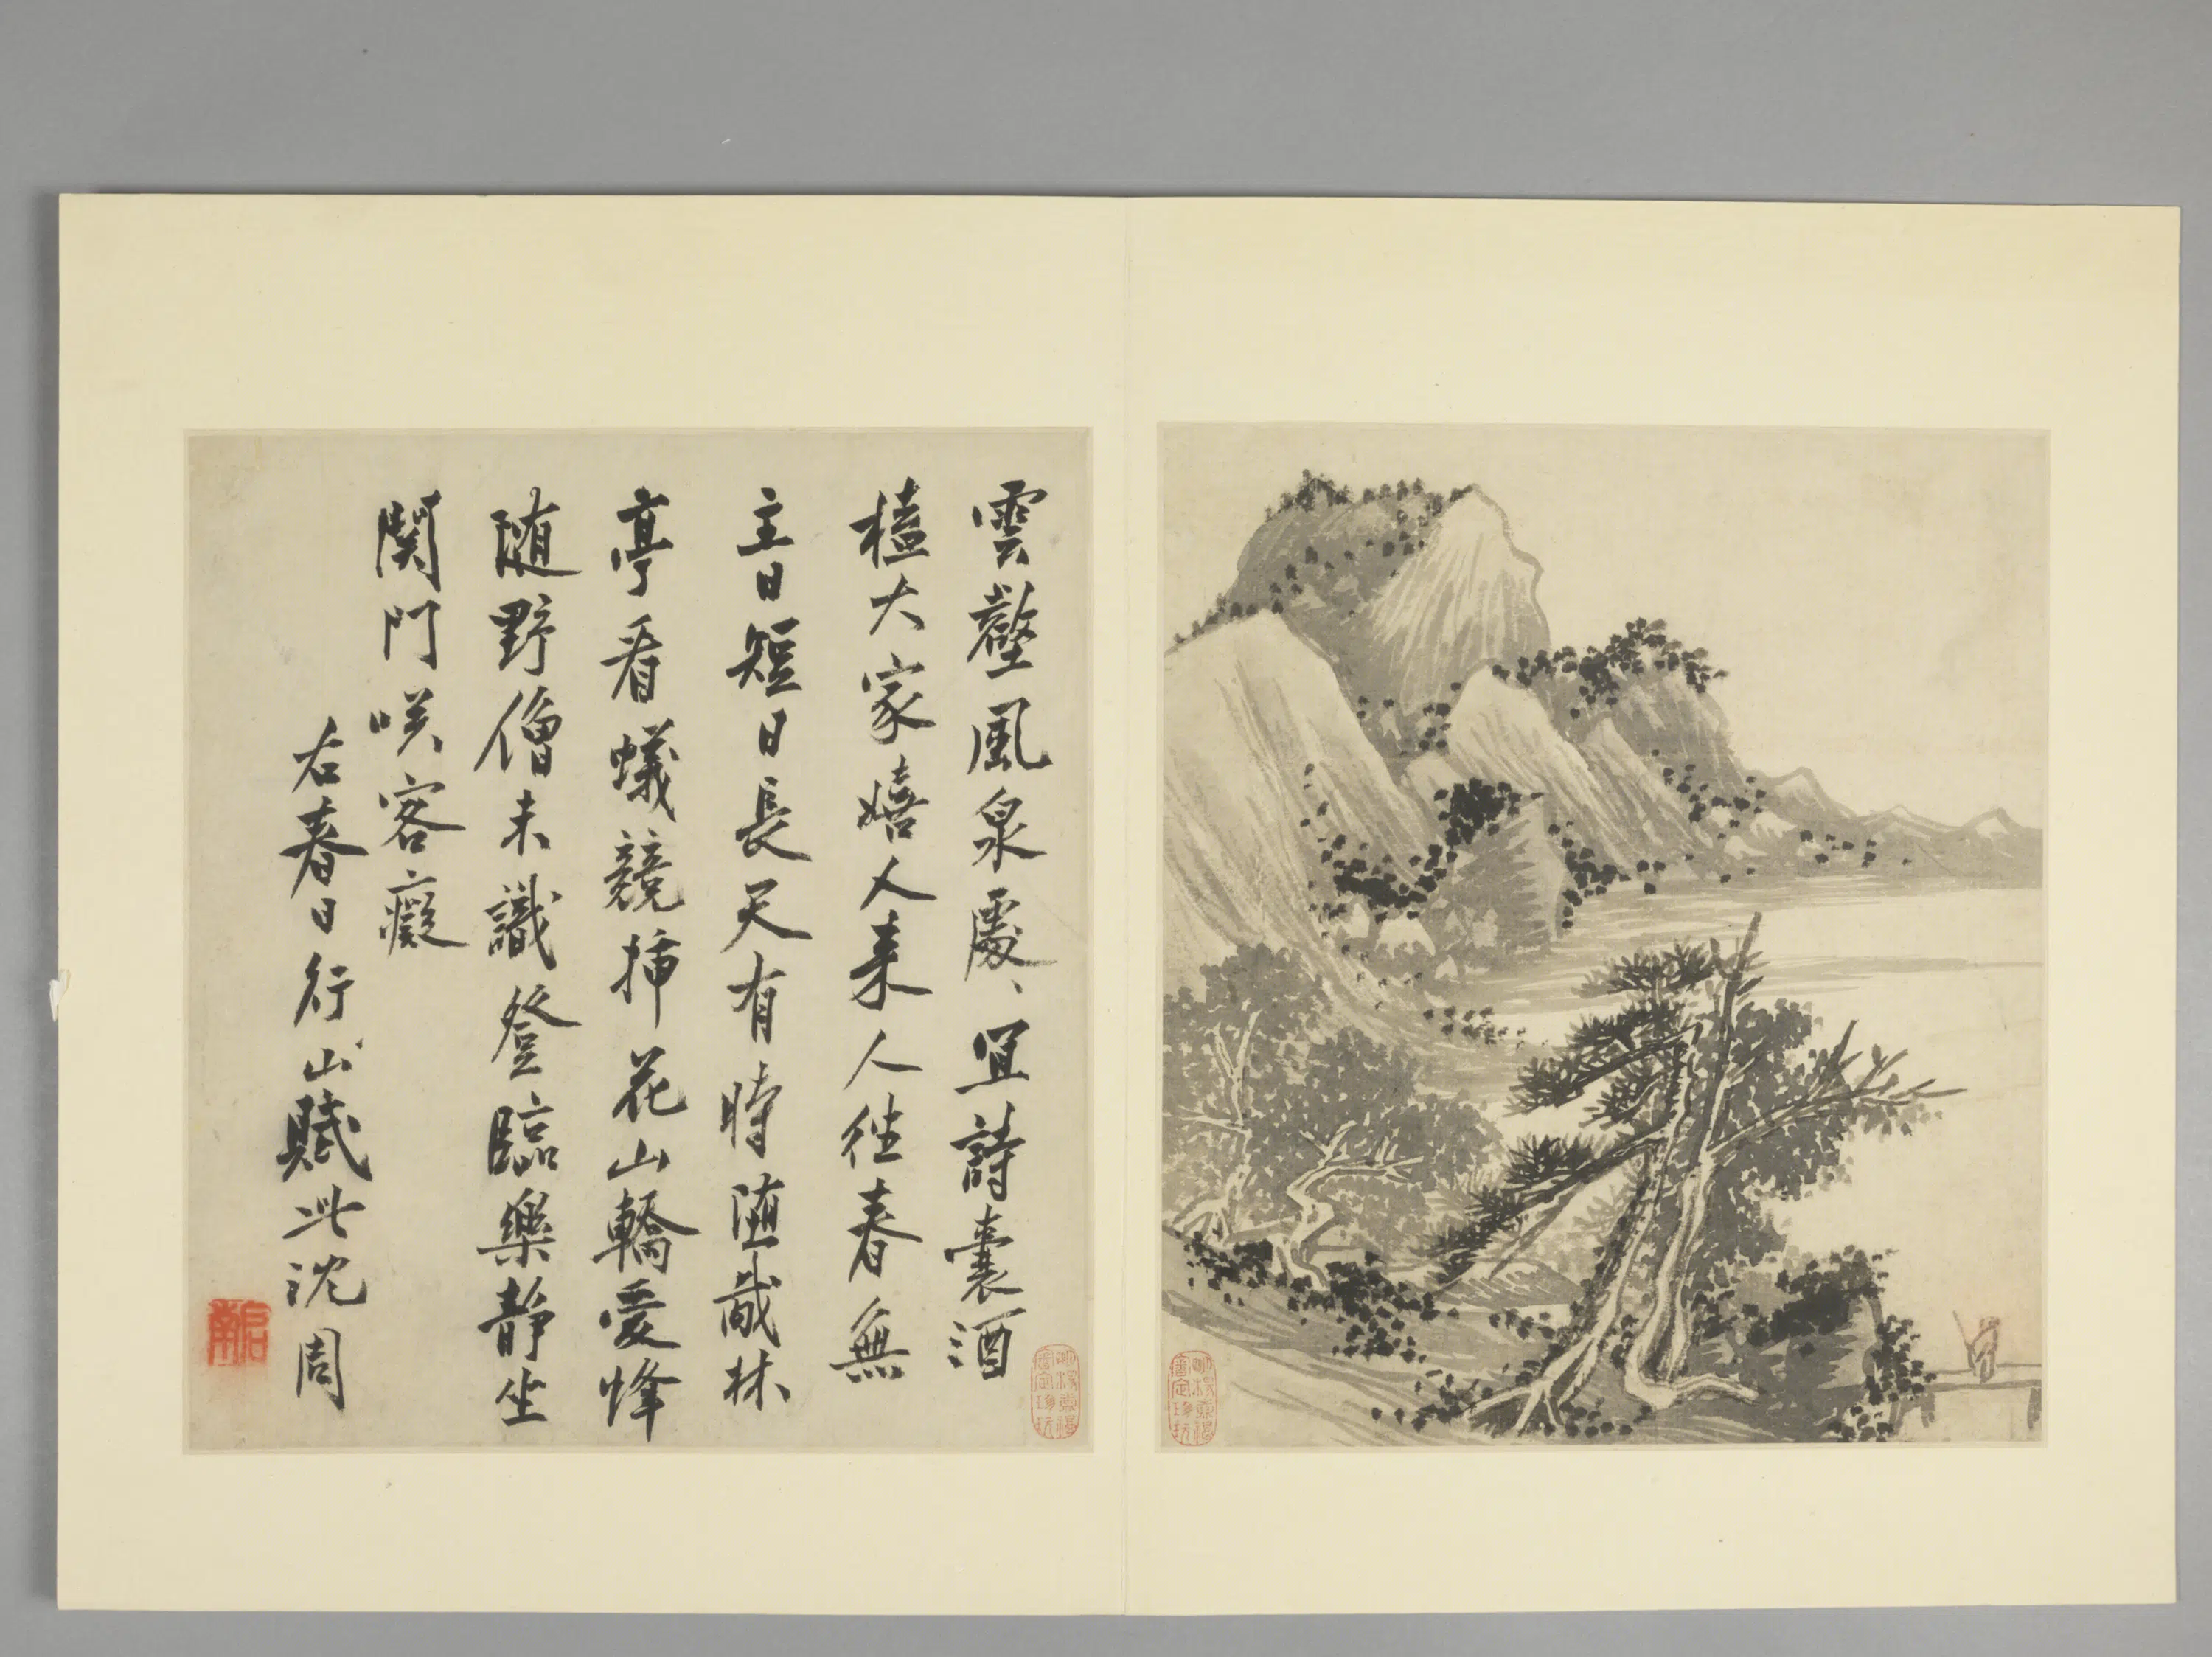 雲壑風泉處、宜詩囊酒
榼大家嬉人来人往春無
主日短日長天有時墮胾林
亭看蟻競揷花山轎愛蜂
随野僧未識登臨樂靜坐
関門咲客癡
右春日行山賦此沈周
啓南